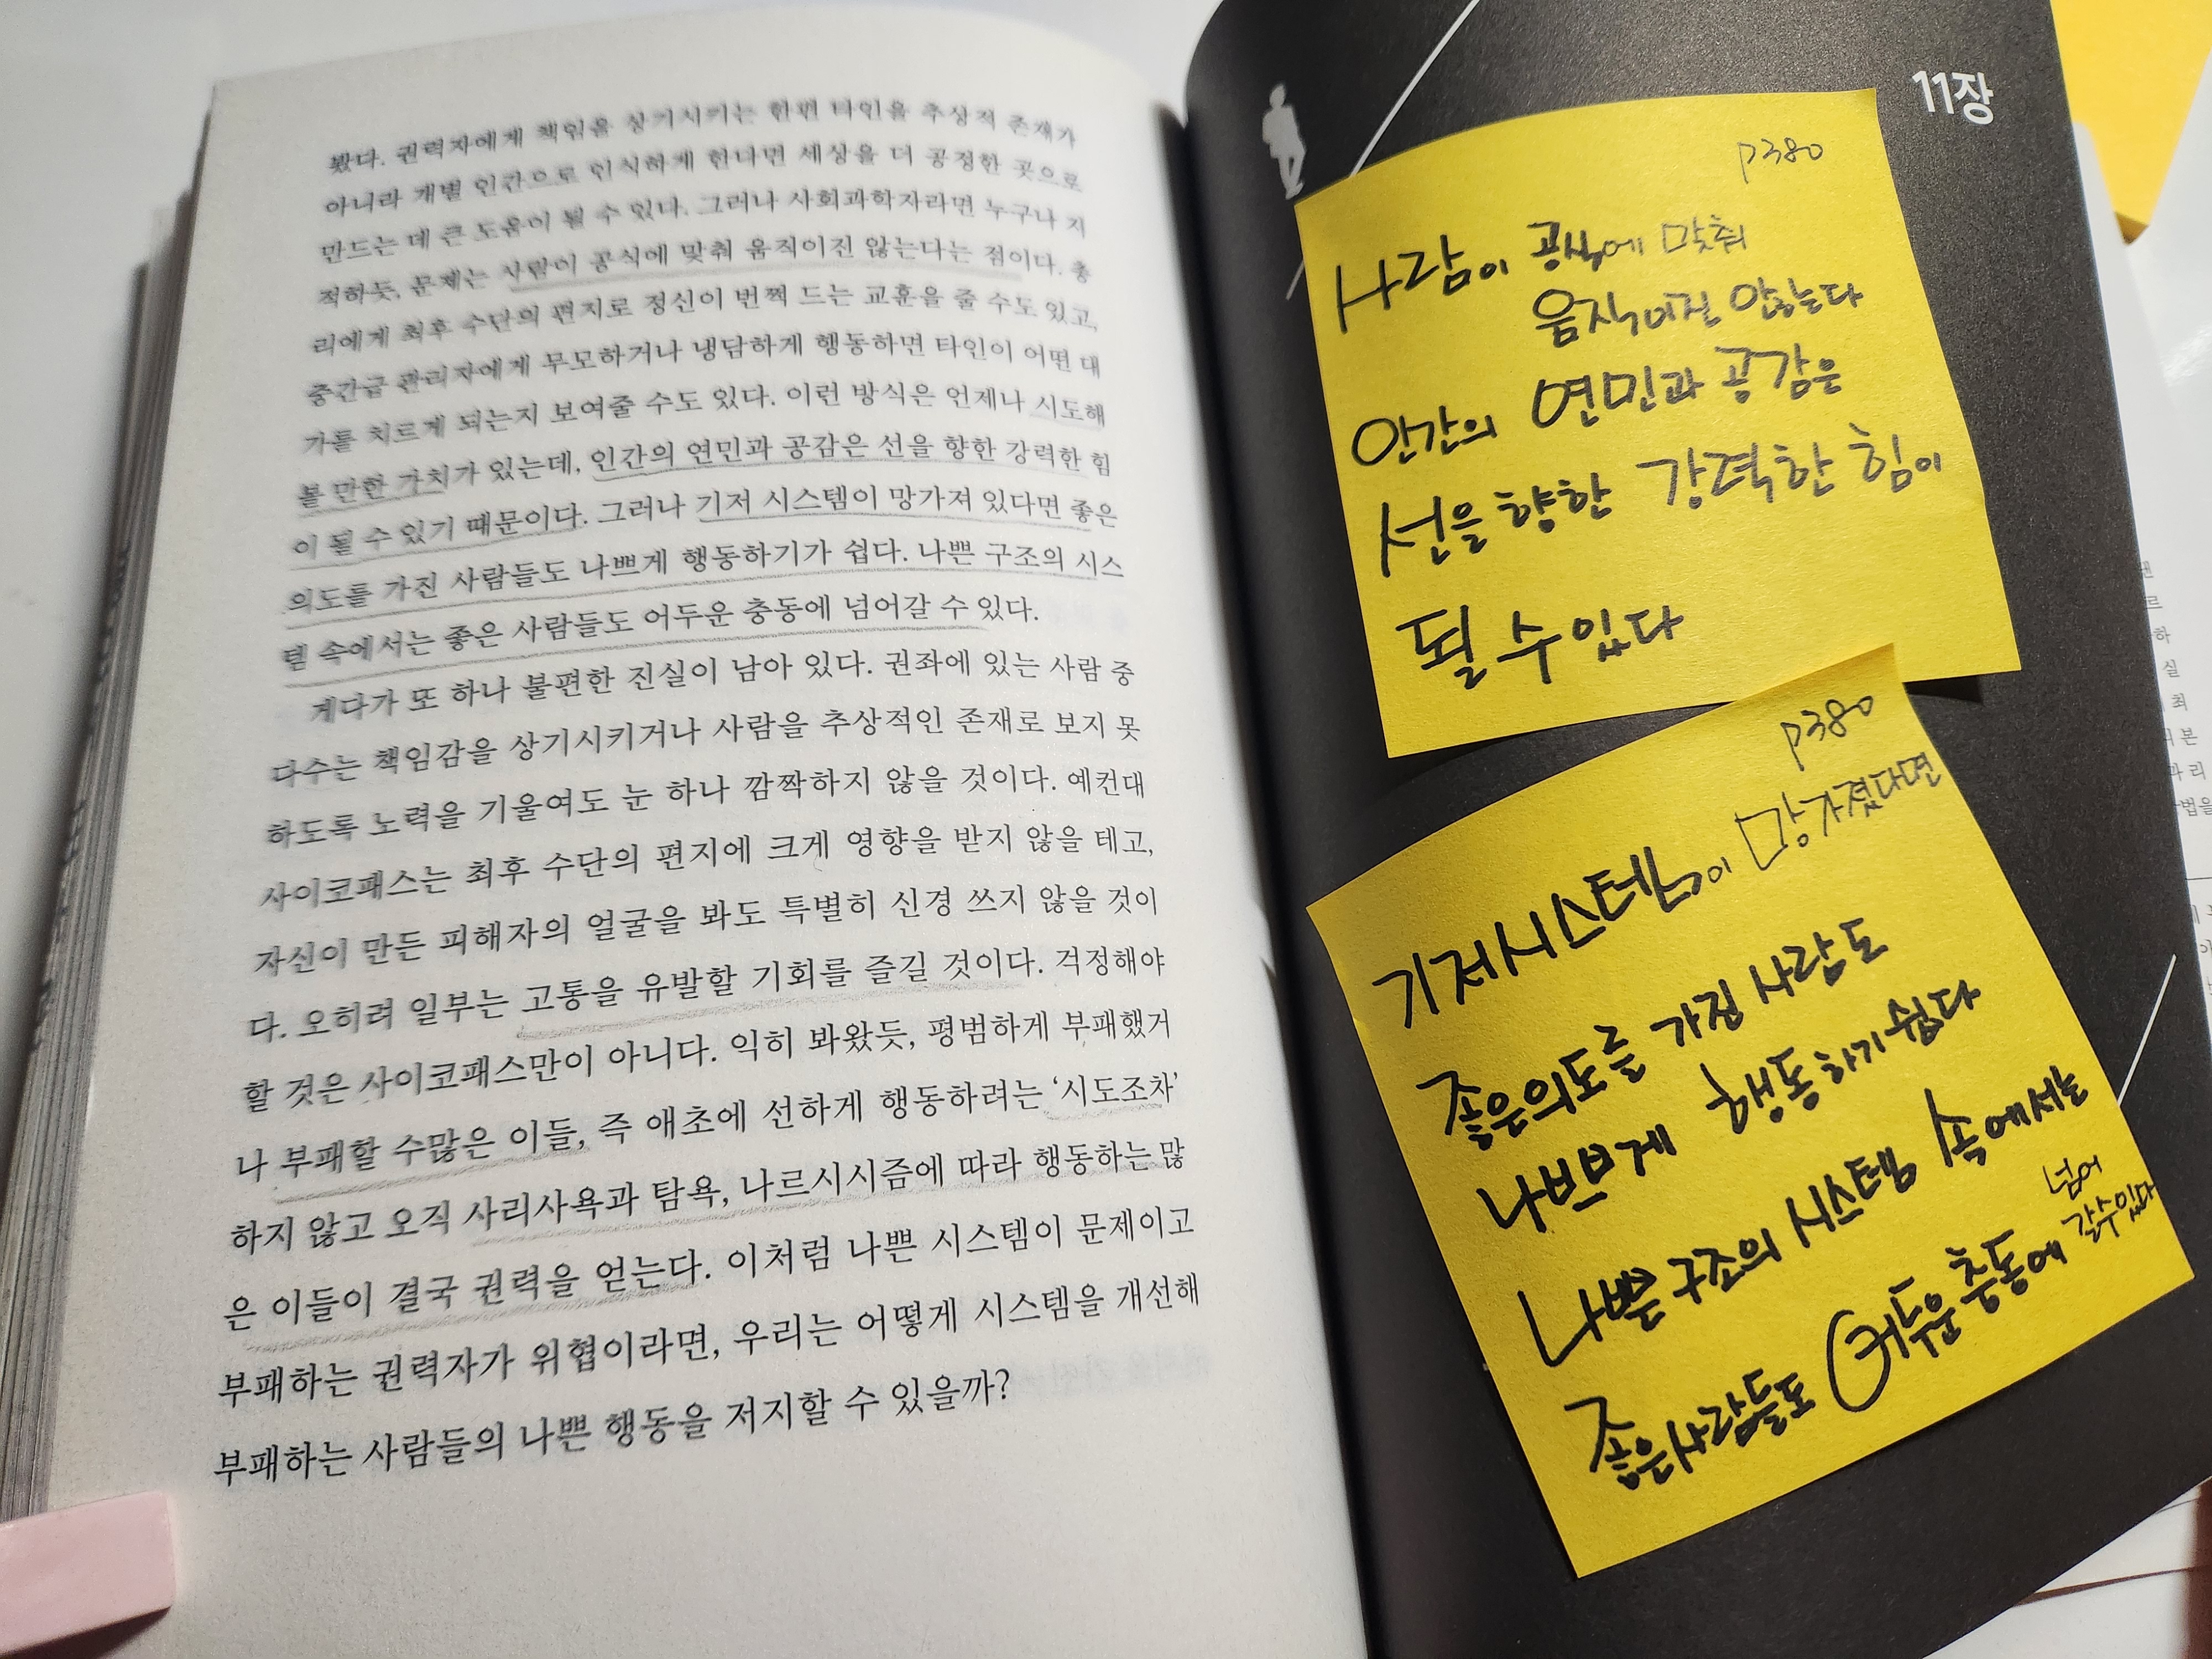 봤다. 권력자에게 책임을 상기시키는 한편 타인을 추상적 존재가
아니라 개별 인간으로 인식하게 한다면 세상을 더 공정한 곳으로
만드는 데 큰 도움이 될 수 있다. 그러나 사회과학자라면 누구나 지
적하듯, 문제는 사람이 공식에 맞춰 움직이진 않는다는 점이다. 총
리에게 최후 수단의 편지로 정신이 번쩍 드는 교훈을 줄 수도 있고,
중간급 관리자에게 무모하거나 냉담하게 행동하면 타인이 어떤 대
가를 치르게 되는지 보여줄 수도 있다. 이런 방식은 언제나 시도해
볼 만한 가치가 있는데, 인간의 연민과 공감은 선을 향한 강력한 힘
이 될 수 있기 때문이다. 그러나 기저 시스템이 망가져 있다면 좋은
의도를 가진 사람들도 나쁘게 행동하기가 쉽다. 나쁜 구조의 시스
템 속에서는 좋은 사람들도 어두운 충동에 넘어갈 수 있다.
게다가 또 하나 불편한 진실이 남아 있다. 권좌에 있는 사람 중
다수는 책임감을 상기시키거나 사람을 추상적인 존재로 보지 못
하도록 노력을 기울여도 눈 하나 깜짝하지 않을 것이다. 예컨대
사이코패스는 최후 수단의 편지에 크게 영향을 받지 않을 테고,
자신이 만든 피해자의 얼굴을 봐도 특별히 신경 쓰지 않을 것이
다. 오히려 일부는 고통을 유발할 기회를 즐길 것이다. 걱정해야
할 것은 사이코패스만이 아니다. 익히 봐왔듯, 평범하게 부패했거
나 부패할 수많은 이들, 즉 애초에 선하게 행동하려는 ‘시도조차’
하지 않고 오직 사리사욕과 탐욕, 나르시시즘에 따라 행동하는 많
은 이들이 결국 권력을 얻는다. 이처럼 나쁜 시스템이 문제이고
부패하는 권력자가 위협이라면, 우리는 어떻게 시스템을 개선해
부패하는 사람들의 나쁜 행동을 저지할 수 있을까?
11장
p380
사람이 공식에 맞춰
움직이진 않는다
인간의 연민과 공감은
선을 향한 강력한 힘이
될 수 있다
p380
기저시스템이 망가졌다면
좋은의도를 가진 사람도
나쁘게 행동하기 쉽다
나쁜 구조의 시스템 속에서는
좋은사람들도 어두운 충동에 넘어
갈수있다